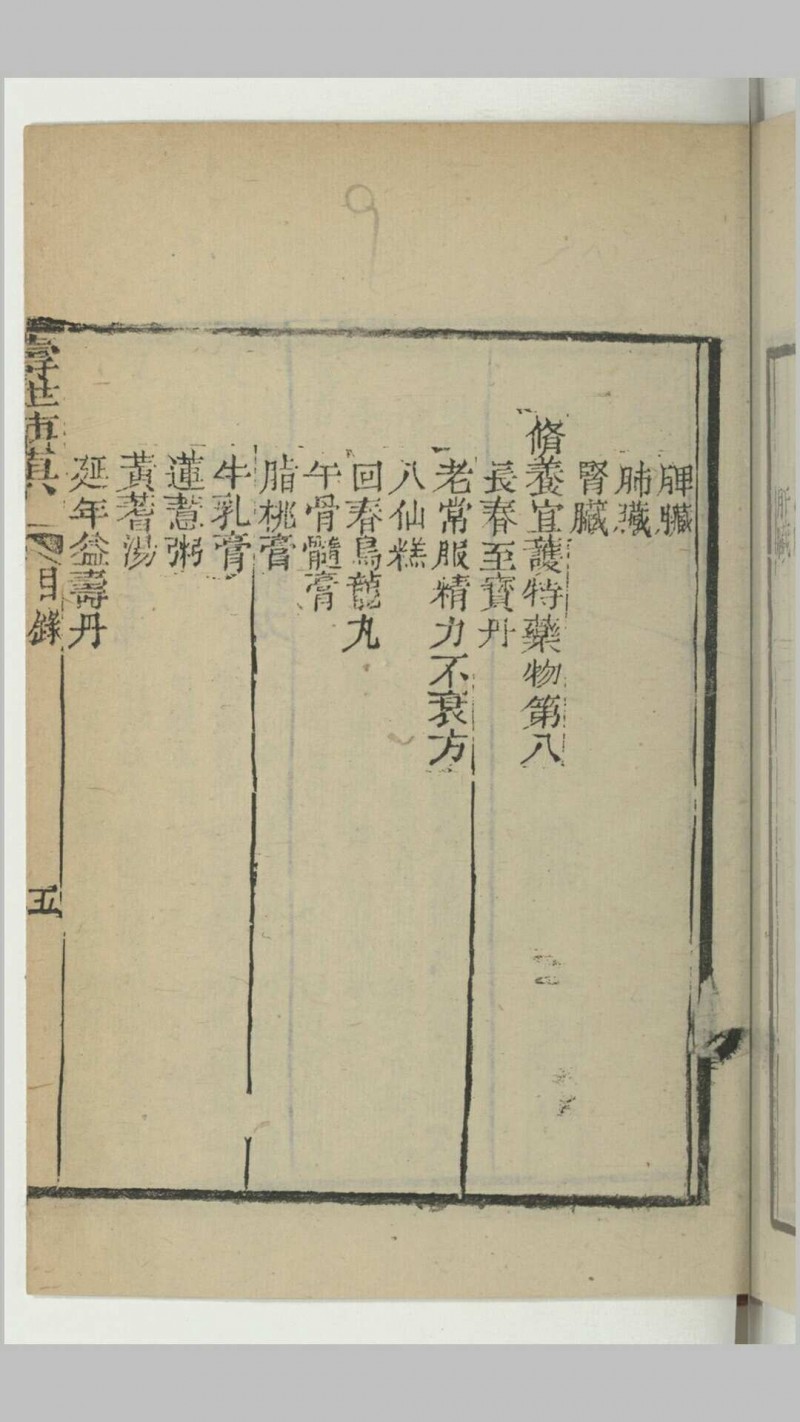 脾臟
肺臟
腎臟
脩養宜護特藥物第八
長春至寶丹
老常服精力不衰方
八仙糕
回春烏龍丸
午骨髓膏
脂桃膏
牛乳膏
蓮薏粥
黃蓍湯
延年益壽丹
壽世 真 目錄 五
肝臟